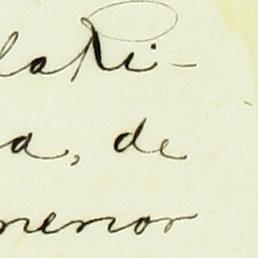 lati-
a, de
menor